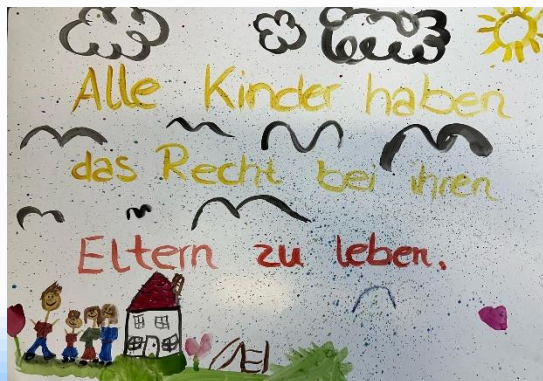 Alle Kinder haben
das Recht bei ihren
Eltern zu leben.